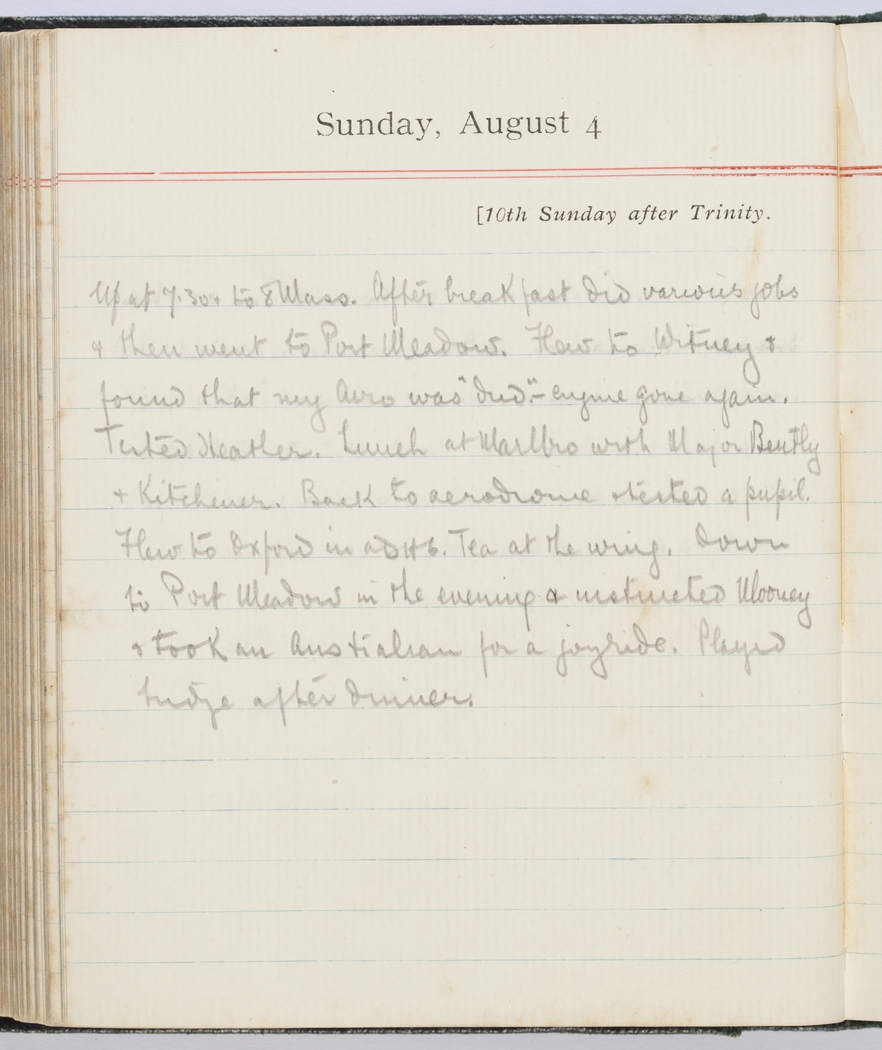 Sunday, August 4
[10th Sunday after Trinity.
Up at 7.30 & to 8 Mass. After breakfast did various jobs
& then went to Port Meadow. Flew to Witney &
found that my Avro was "dud" - engine gone again.
Tested Heather. Lunch at Marlbro with Major Bently
& Kitchener. Back to aerodrome & tested a pupil.
Flew to Oxford in a DH6. Tea at the wing. Down
to Port Meadow in the evening & instructed Mooney
& took an Australian for a joyride. Played
bridge after dinner.